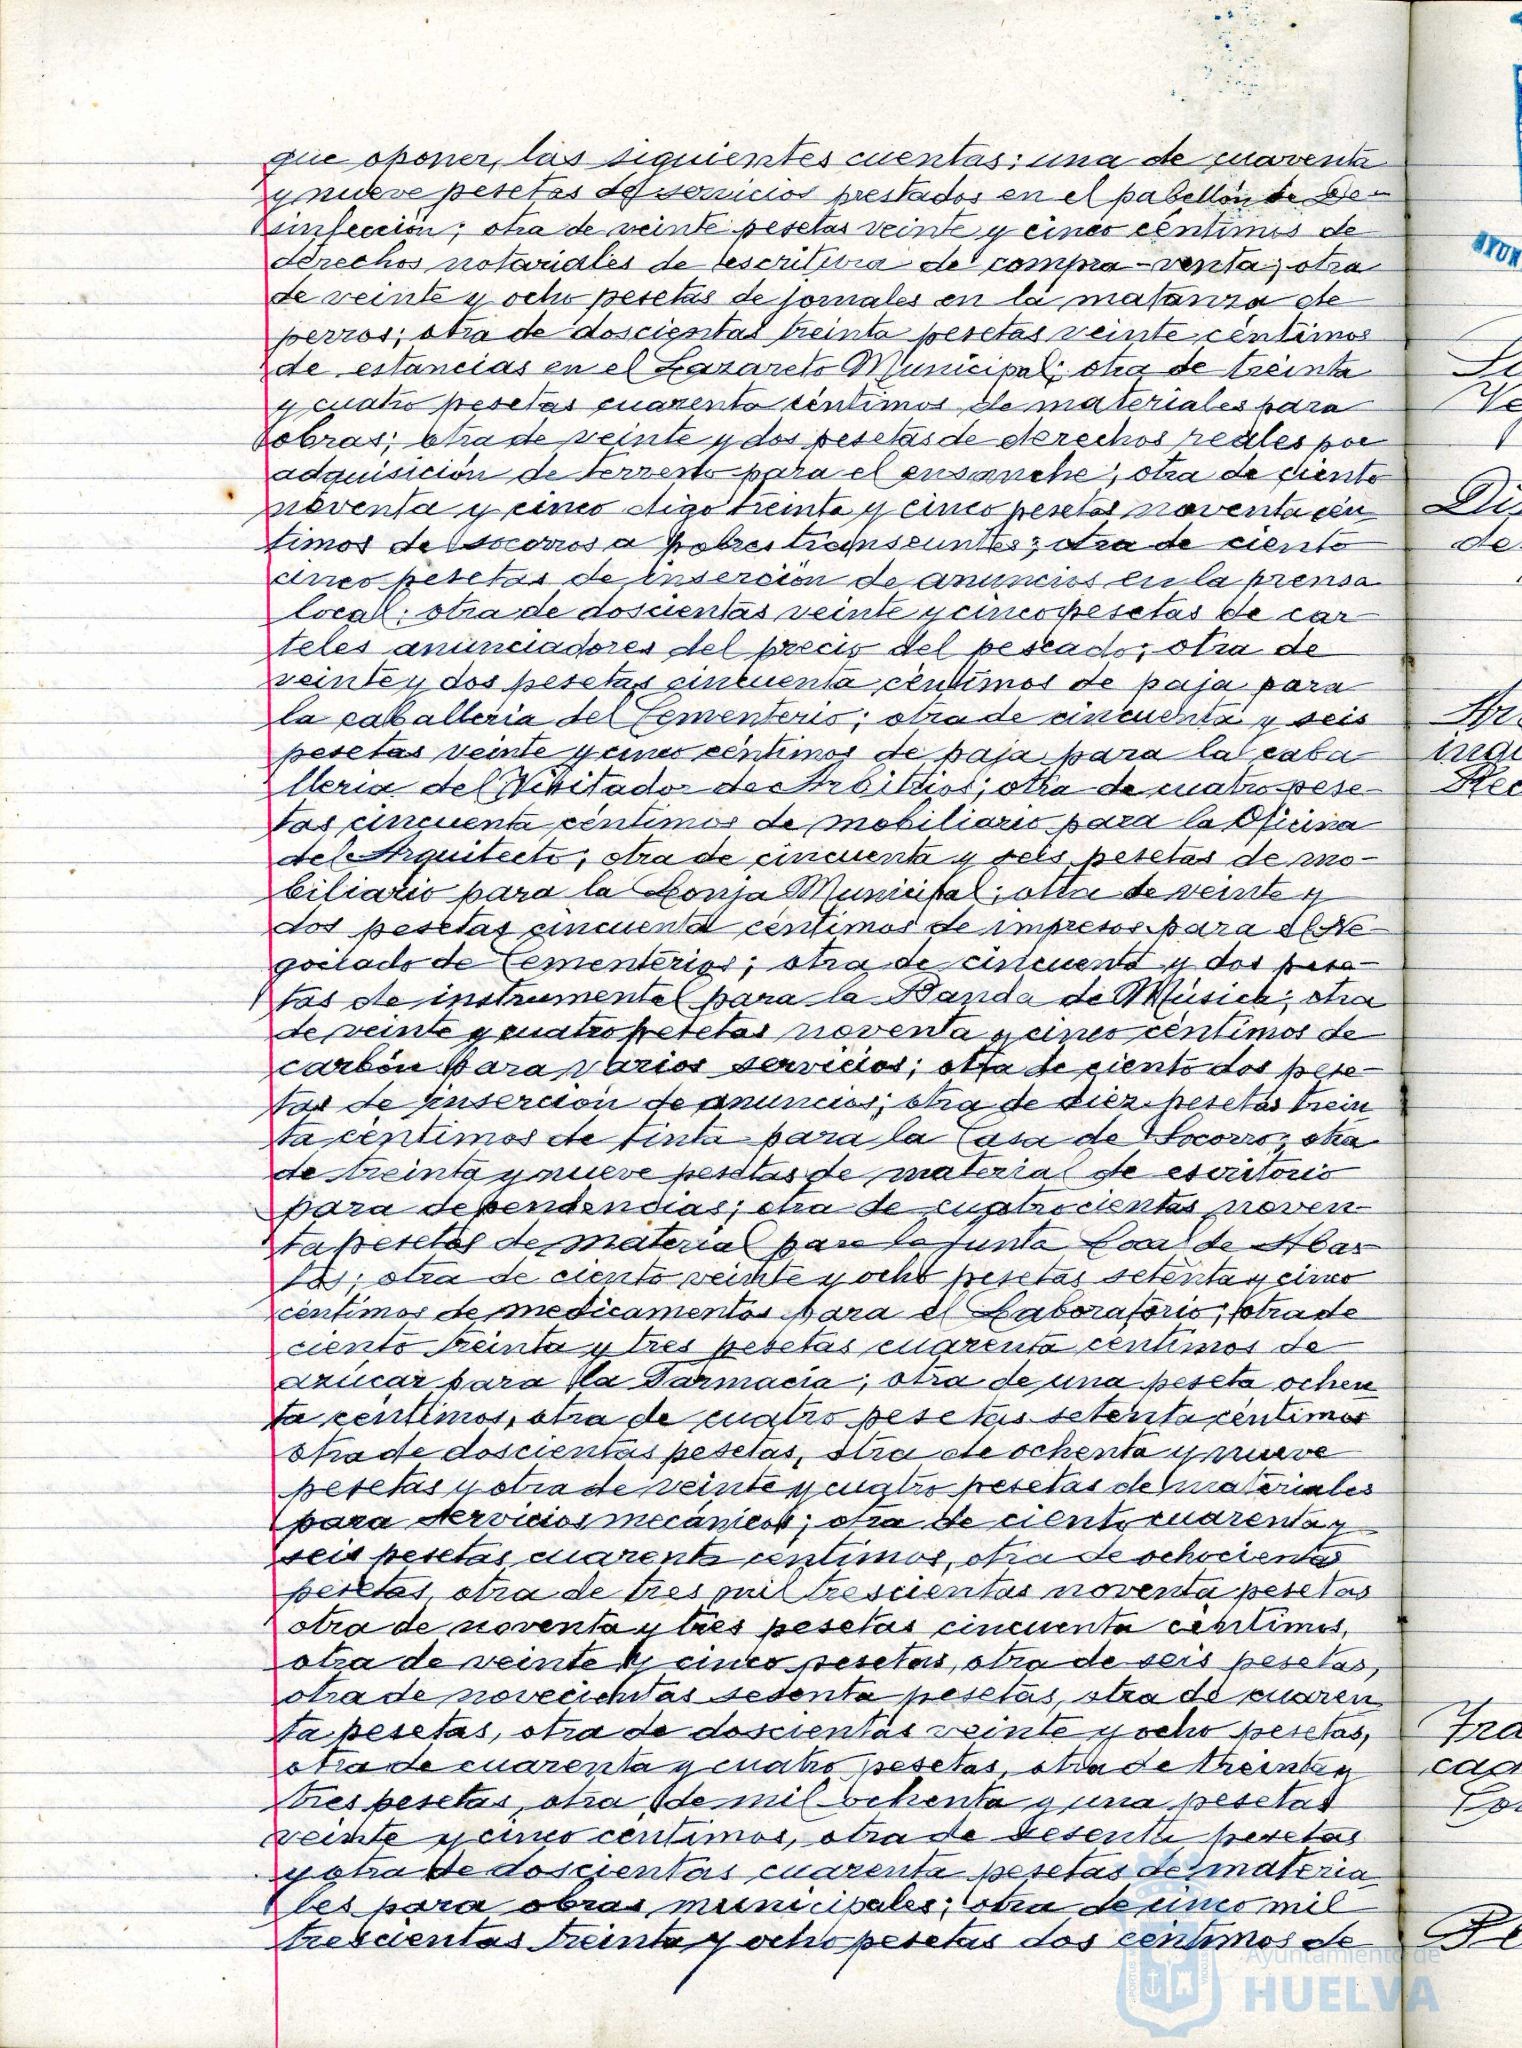 que oponer, las siguientes cuentas: una de cuarenta
y nueve pesetas de servicios prestados en el pabellón de De-
sinfección; otra de veinte pesetas veinte y cinco céntimos de
derechos notariales de escritura de compra-venta; otra
de veinte y ocho pesetas de jornales en la matanza de
perros; otra de doscientas treinta pesetas veinte céntimos
de estancias en el Lazareto Municipal; otra de treinta
y cuatro pesetas cuarenta céntimos de materiales para
obras; otra de veinte y dos pesetas de derechos reales por
adquisición de terreno para el ensanche; otra de ciento
noventa y cinco digo treinta y cinco pesetas noventa cén
timos de socorros a pobres transeuntes; otra de ciento
cinco pesetas de inserción de anuncios en la prensa
local; otra de doscientas veinte y cinco pesetas de car
teles anunciadores del precio del pescado; otra de
veinte y dos pesetas cincuenta céntimos de paja para
la caballeria del Cementerio; otra de cincuenta y seis
pesetas veinte y cinco céntimos de paja para la caba-
lleria del Visitador de Arbitrios; otra de cuatro pese-
tas cincuenta céntimos de mobiliario para la Oficina
del Arquitecto; otra de cincuenta y seis pesetas de mo-
biliario para la Lonja Municipal; otra de veinte y
dos pesetas cincuenta céntimos de impresos para el Ne-
gociado de Cementerios; otra de cincuenta y dos pese-
tas de instrumental para la Banda de Música; otra
de veinte y cuatro pesetas noventa y cinco céntimos de
carbón para varios servicios; otra de ciento dos pese-
tas de inserción de anuncios; otra de diez pesetas trein
ta céntimos de tinta para la Casa de Socorro; otra
de treinta y nueve pesetas de material de escritorio
para dependencias; otra de cuatrocientas noven-
ta pesetas de material para la Junta Local de Abas
tos; otra de ciento veinte y ocho pesetas setenta y cinco
céntimos de medicamentos para el Laboratorio; otra de
ciento treinta y tres pesetas cuarenta céntimos de
azúcar para la Farmacia; otra de una peseta ochen
ta céntimos, otra de cuatro pesetas setenta céntimos
otra de doscientas pesetas, otra de ochenta y nueve
pesetas y otra de veinte y cuatro pesetas de materiales
para servicios mecánicos; otra de ciento cuarenta y
seis pesetas cuarenta centimos, otra de ochocientas
pesetas, otra de tres mil trescientas noventa pesetas
otra de noventa y tres pesetas cincuenta céntimos,
otra de veinte y cinco pesetas, otra de seis pesetas,
otra de novecientas sesenta pesetas, otra de cuaren
ta pesetas, otra de doscientas veinte y ocho pesetas,
otra de cuarenta y cuatro pesetas, otra de treinta y
tres pesetas, otra de mil ochenta y una pesetas
veinte y cinco céntimos, otra de sesenta pesetas
y otra de doscientas cuarenta pesetas de materia
les para obras municipales; otra de cinco mil
trescientas treinta y ocho pesetas dos céntimos de
Ayuntamiento de
HUELVA